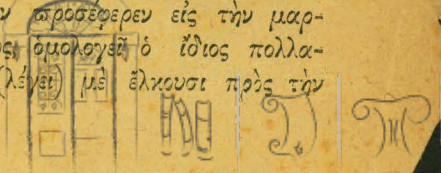 ν προσέφερεν εἰς τὴν μαρ-
ος, ὁμολογεῖ ὁ ἴδιος πολλα-
(λέγει) μὲ ἕλκουσι πρὸς τὴν